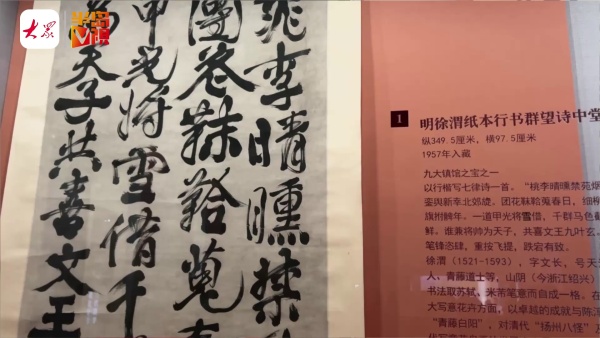 大眾
李晴曛禁
團花靺鞈蒐
甲光將雪借千
天子共喜文王
1 明徐渭纸本行书群望诗中堂
纵349.5厘米,横97.5厘米
1957年入藏
九大镇馆之宝之一
以行楷写七律诗一首。“桃李晴曛禁苑烟
銮舆新幸北郊 团花靺鞈蒐春日,细柳
一道甲光将雪借,千群马色
鲜。谁兼将帅为天子,共喜文王九叶玄。
笔锋恣肆,重按飞提,跌宕有致。
徐渭(1521-1593),字文长,号天
人、青藤道士等,山阴(今浙江绍兴)
书法取苏轼、米芾笔意而自成一格。在
大写意花卉方面,以卓越的成就与陈
“青藤白阳”,对清代“扬州八怪”